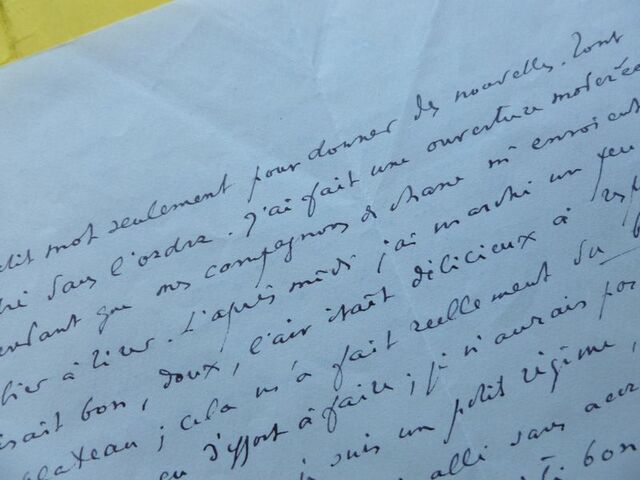 mot seulement pour donner des nouvelles. Tout
dans l'ordre. J'ai fait une ouverture modérée
que mes compagnons de chasse m'envoient
à tirer. L'après midi j'ai marché un peu
bon, doux, l'air était délicieux à
plateau ; cela m'a fait reellement du
d'effort à faire ; je n'aurais pas
suis un petit régime,
allé sans
bon